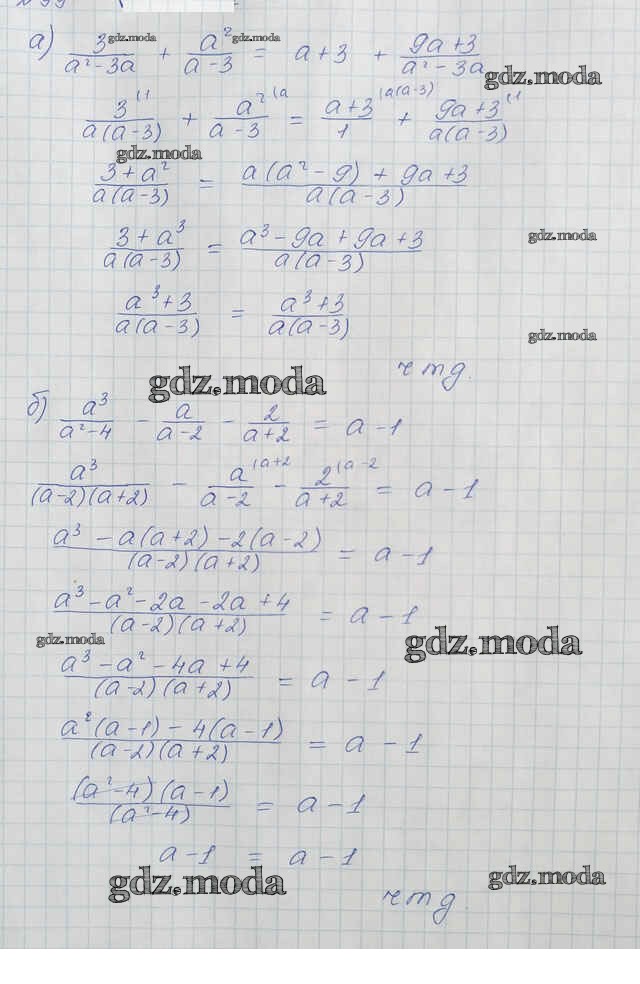 а) 3/(a²-3a) + a²/(a-3) = a+3 + (9a+3)/(a²-3a)
gdz.moda gdz.moda gdz.moda
3⁽¹/(a(a-3)) + a²⁽ᵃ/(a-3) = (a+3)⁽ᵃ⁽ᵃ⁻³⁾/1 + (9a+3)⁽¹/(a(a-3))
gdz.moda
(3+a²)/(a(a-3)) = (a(a²-9)+9a+3)/(a(a-3))
(3+a³)/(a(a-3)) = (a³-9a+9a+3)/(a(a-3))
gdz.moda
(a³+3)/(a(a-3)) = (a³+3)/(a(a-3))
gdz.moda
чтд.
gdz.moda
б) a³/(a²-4) - a/(a-2) - 2/(a+2) = a-1
a³/((a-2)(a+2)) - a⁽ᵃ⁺²/(a-2) - 2⁽ᵃ⁻²/(a+2) = a-1
(a³-a(a+2)-2(a-2))/((a-2)(a+2)) = a-1
(a³-a²-2a-2a+4)/((a-2)(a+2)) = a-1
gdz.moda gdz.moda
(a³-a²-4a+4)/((a-2)(a+2)) = a-1
(a²(a-1)-4(a-1))/((a-2)(a+2)) = a-1
((a²-4)(a-1))/(a²-4) = a-1
a-1 = a-1
gdz.moda gdz.moda
чтд.